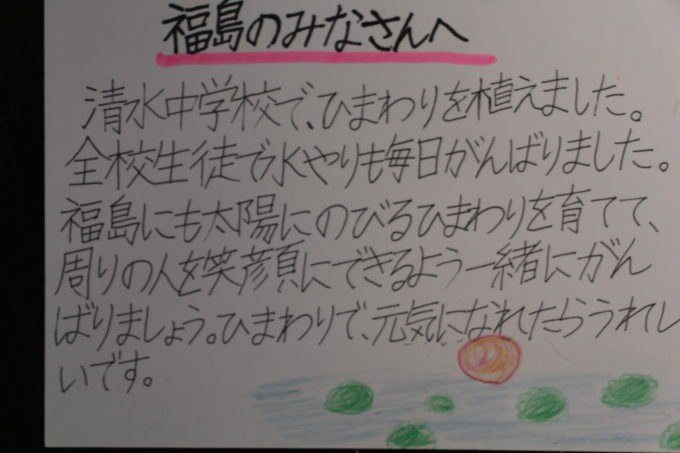 福島のみなさんへ
清水中学校で、ひまわりを植えました。
全校生徒で水やりも毎日がんばりました。
福島にも太陽にのびるひまわりを育てて、
周りの人を笑顔にできるよう一緒にがん
ばりましょう。ひまわりで、元気になれたらうれし
いです。